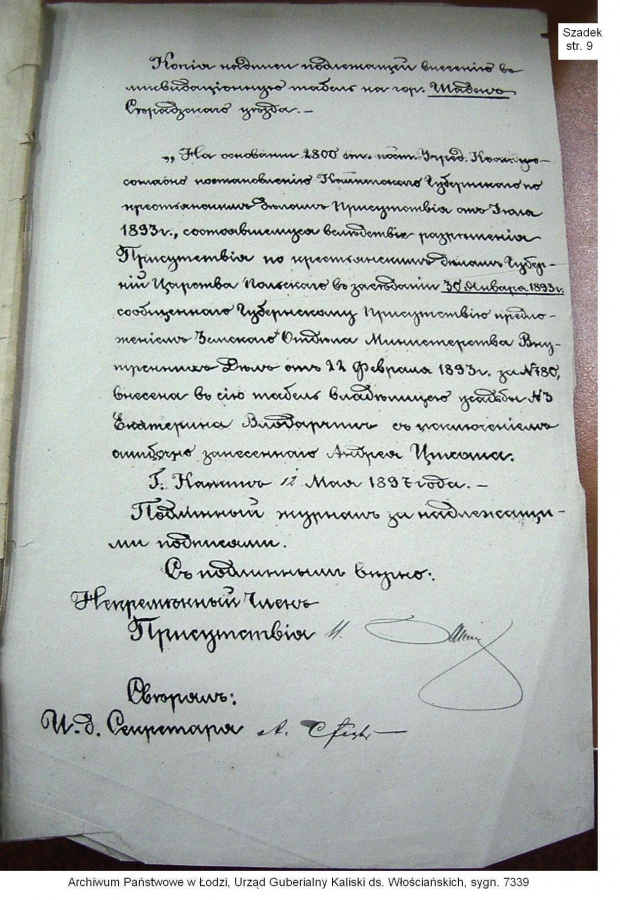 Szadek
str. 9
Копія надписи подлежащей внесенію въ
ликвидаціонную табель на гор. Шадекъ
Сѣрадзскаго уѣзда. —
„На основаніи 2800 ст. пост. Учред. Ком., со-
согласно постановленію Калишскаго Губернскаго по
крестьянскимъ дѣламъ Присутствія отъ Іюля
1893 г., состоявшемуся вслѣдствіе разрѣшенія
Присутствія по крестьянскимъ дѣламъ Губер-
ній Царства Польскаго въ засѣданіи 30 Января 1893 г.
сообщеннаго Губернскому Присутствію предло-
женіемъ Земскаго Отдѣла Министерства Вну-
треннихъ Дѣлъ отъ 22 Февраля 1893 г. за № 780,
внесена въ сію табель владѣлицею усадьбы № 3
Екатерина с исключеніемъ
ошибочно занесеннаго Андрея
Г. Калишъ 12 Мая 1897 года. —
Подлинный журналъ за надлежащи-
ми подписами.
Съ подлиннымъ вѣрно:
Непремѣнный Членъ
Присутствія
Свѣрялъ:
И. д. Секретаря
Archiwum Państwowe w Łodzi, Urząd Guberialny Kaliski ds. Włościańskich, sygn. 7339